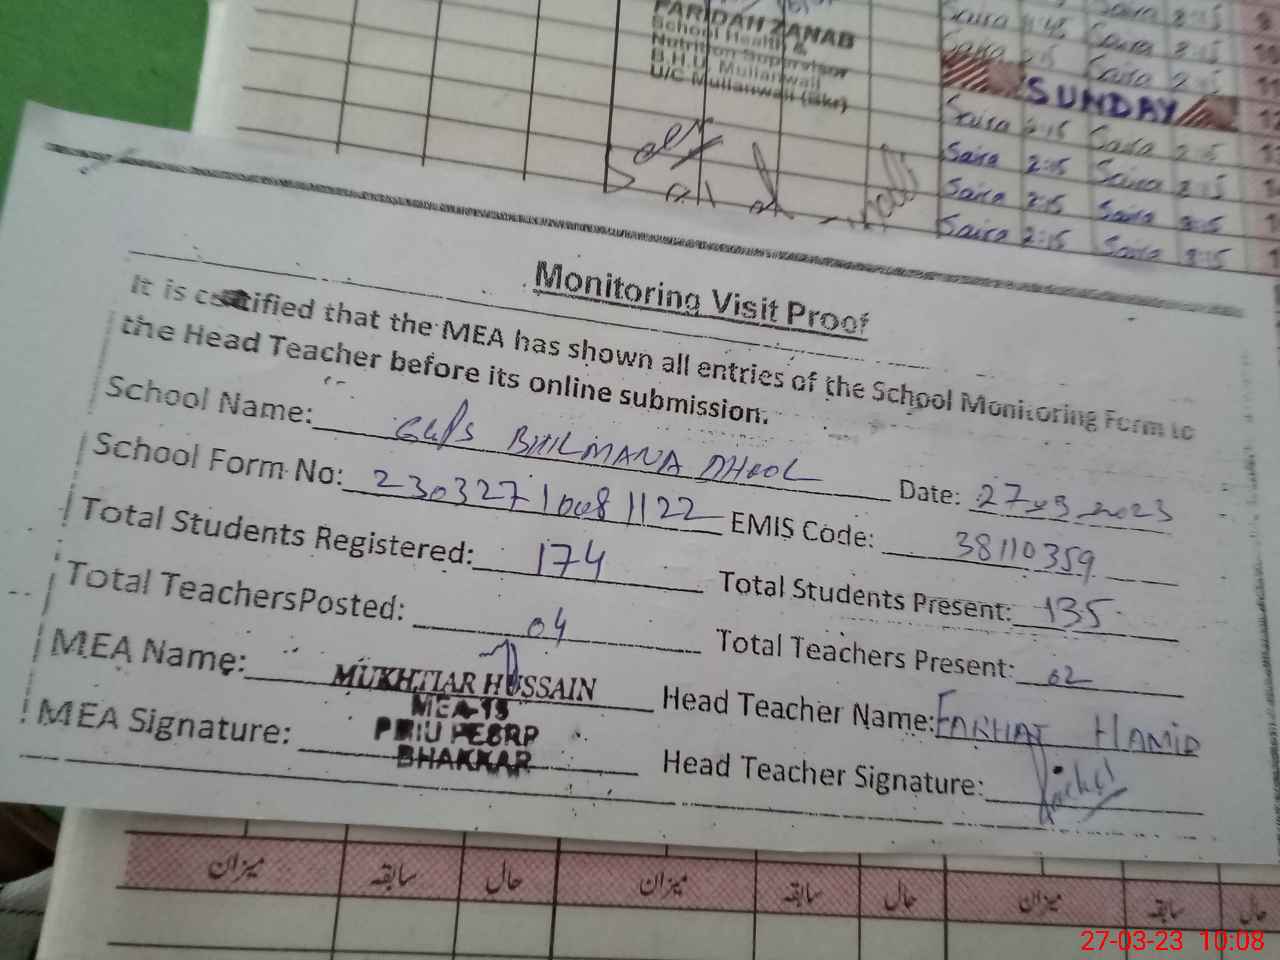 FARIDAH ZANAB
School Health &
Nutrition Supervisor
B.H.U. Mullanwali
U/C Mullanwali (Bkr)
Saira 2:15 Saira 2:15
SUNDAY
Saira 2:15 Saira 2:15
Saira 2:15 Saira 2:15
Saira 2:15 Saira 2:15
Saira 2:15 Saira 2:15
Monitoring Visit Proof
It is certified that the MEA has shown all entries of the School Monitoring Form to
the Head Teacher before its online submission.
School Name: GGPS BHILMANA DHOOL Date: 27-03-2023
School Form No: 23032710081122 EMIS Code: 38110359
Total Students Registered: 174 Total Students Present: 135
Total TeachersPosted: 04 Total Teachers Present: 02
MEA Name: MUKHTIAR HUSSAIN Head Teacher Name: FARHAT HAMID
MEA-15
PMIU PESRP
BHAKKAR
MEA Signature: Head Teacher Signature:
میزان سابقہ حال میزان سابقہ حال میزان سابقہ حال
27-03-23 10:08